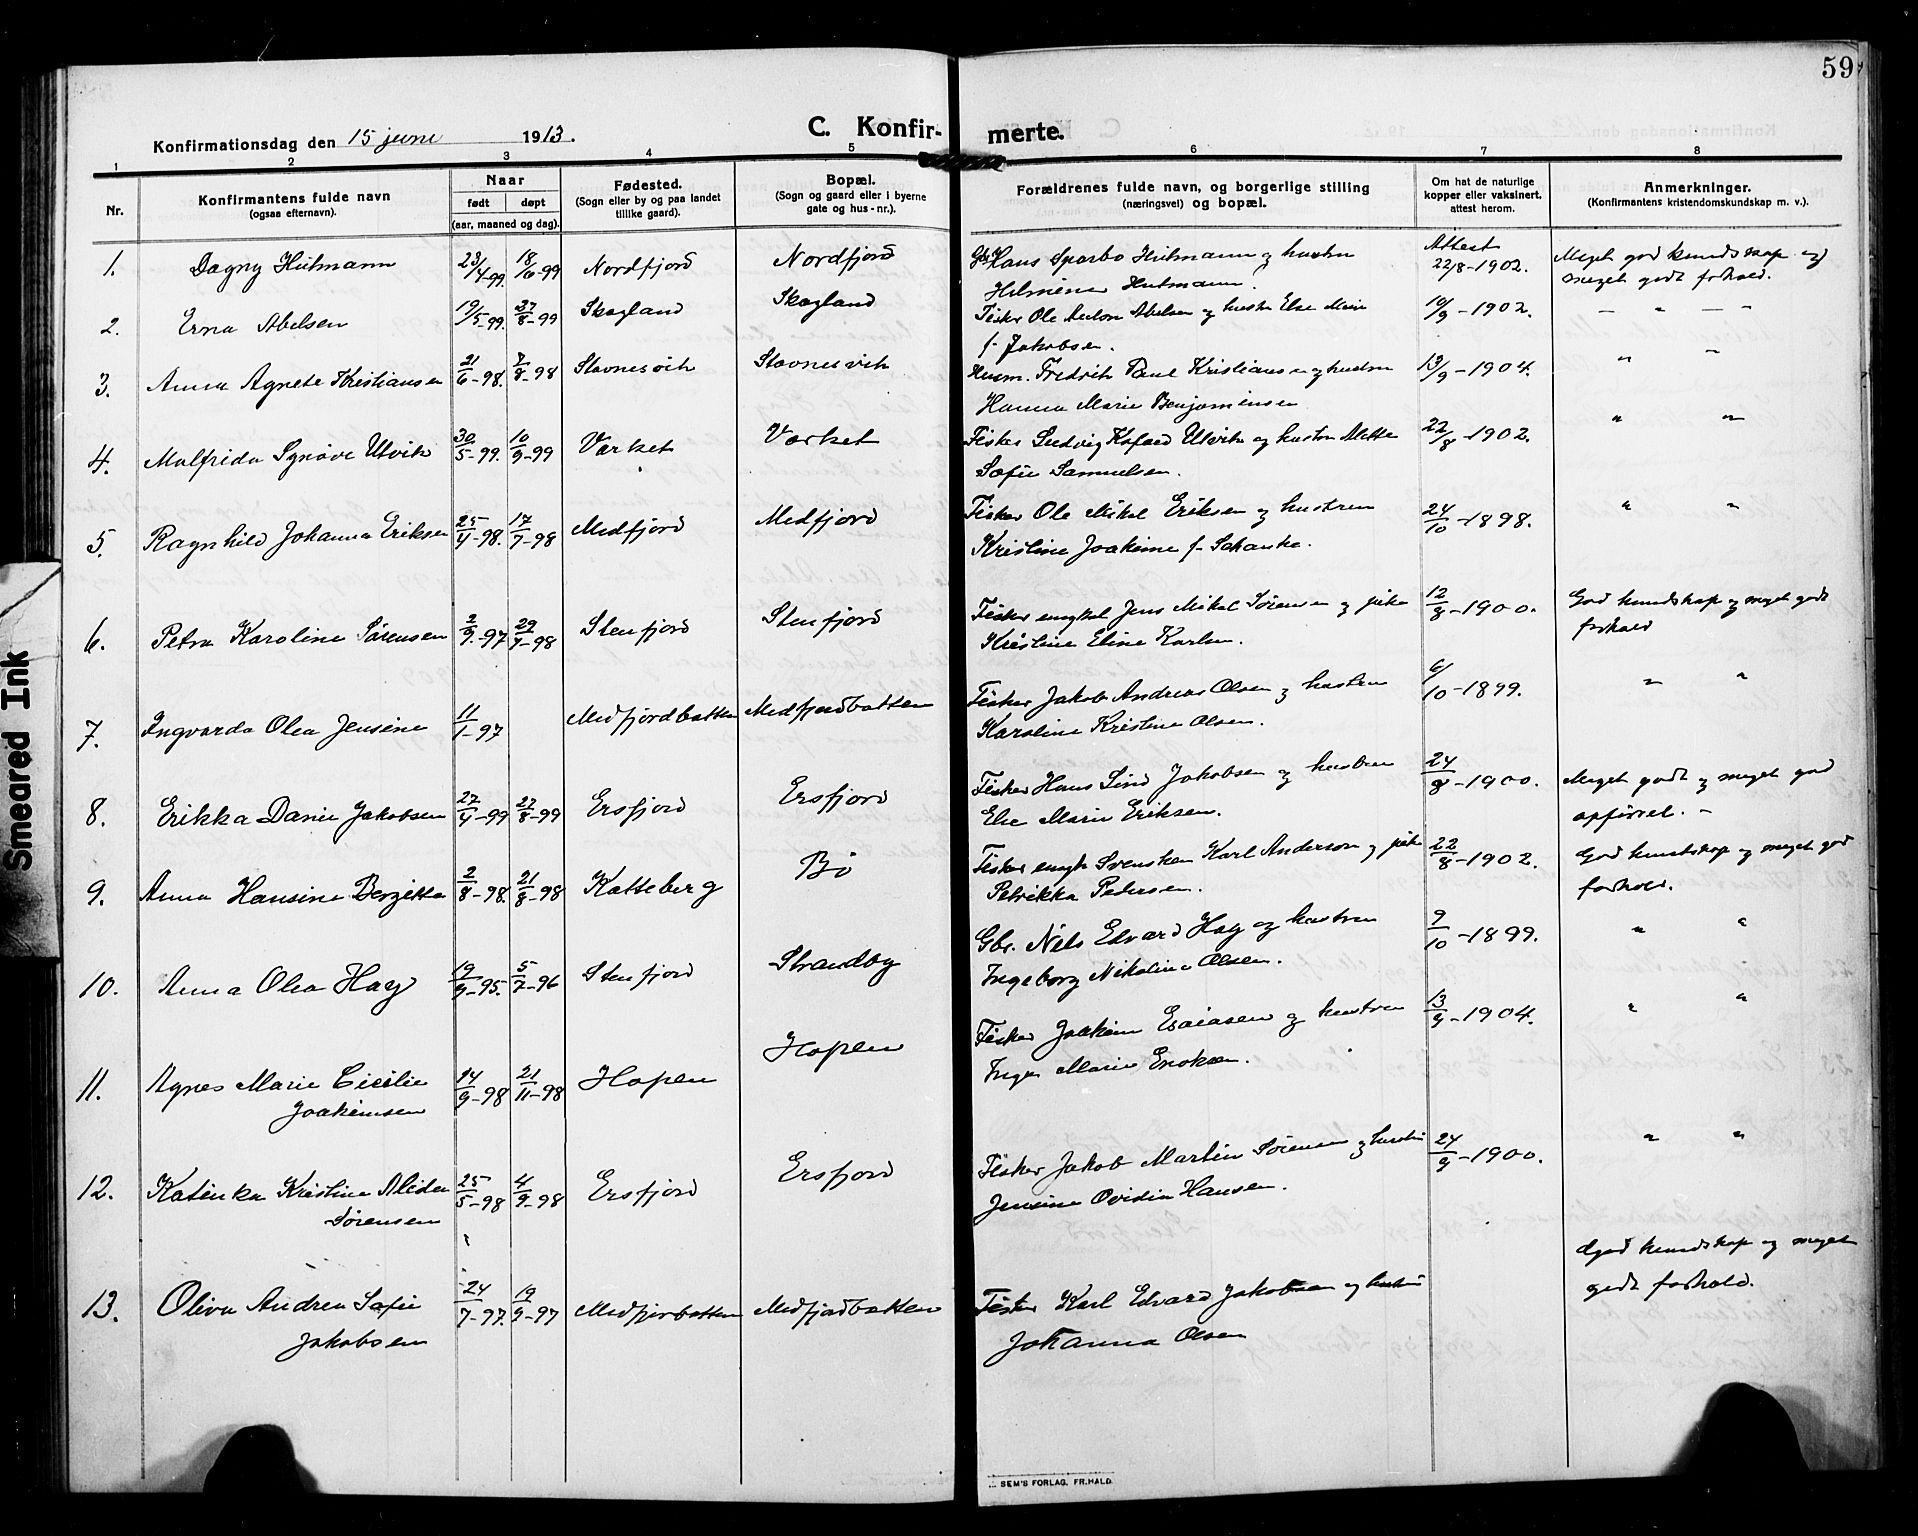 59
Konfirmationsdag den 15 juni 1913.
C. Konfir-
merte.
1 2 3 4 5 6 7 8
Nr.
Konfirmantens fulde navn
(ogsaa efternavn).
Naar
født døpt
(aar, maaned og dag).
Fødested.
(Sogn eller by og paa landet
tillike gaard).
Bopæl.
(Sogn og gaard eller i byerne
gate og hus-nr.).
Forældrenes fulde navn, og borgerlige stilling
(næringsvei) og bopæl.
Om hat de naturlige
kopper eller vaksinert,
attest herom.
Anmerkninger.
(Konfirmantens kristendomskundskap m. v.).
1. Dagny Hutmann 23/4-99 18/6-99 Nordfjord Nordfjord Gbr Hans Sparbo Hutmann og hustru Attest 22/8-1902. Meget god kundskap og
Helmine Hutmann. meget godt forhold.
2. Erna Abelsen 19/5-99. 27/8-99 Skogland Skogland Fisker Ole Anton Abelsen og hustru Else Marie 19/9-1902. — " — —
f. Jakobsen.
3. Anna Agnete Kristiansen 21/6-98. 7/8-98 Stavnesvik Stavnesvik Husm. Fredrik Paul Kristiansen og hustru 13/9-1904. " "
Hanna Marie Benjaminsen
4. Malfrida Synøve Utvik 30/5-99. 10/9-99 Varket Varket Fisker Ludvig Utvik og hustru Mette 22/8-1902. " "
Sofie Samuelsen.
5. Ragnhild Johanna Eriksen 25/4-98. 17/7-98 Medfjord Medfjord Fisker Ole Mikal Eriksen og hustru 24/10-1898. " "
Kristine Joakime f. Schanke.
6. Petra Karoline Sørensen 2/9-97 29/7-98 Stenfjord Stenfjord Fisker ungkal Jens Mikal Sørensen og pike 12/8-1900. God kundskap og meget godt
Kristine Eline Karlsen. forhold
7. Ingvarda Olea Jensine 11/1-97 Medfjordbotten Medfjordbotten Fisker Jakob Andreas Olsen og hustru 6/10-1899. " "
Karoline Kristine Olsen.
8. Erikka Danie Jakobsen 27/4-99 27/8-99 Ersfjord Ersfjord Fisker Hans Lind Jakobsen og hustru 24/8-1900. Meget godt og meget god
Else Marie Eriksen. opførsel. -
9. Anna Hansine Bergitta 2/8-98. 21/8-98 Katteberg Bø Fisker ungk Svensken Karl Anderson og pike 22/8-1902. God kundskap og meget god
Petrikka Pedersen. forhold.
10. Anna Olea Hay 19/9-95. 5/7-96 Stenfjord Strandby Gbr. Nils Edvard Hay og hustru 9/10-1899. " "
Ingeborg Nikoline Olsen.
11. Agnes Marie Cicilie 14/9-98 21/11-98 Hopen Hopen Fisker Joakim Esaiasen og hustru 13/9-1904. " "
Joakimsen Inga Marie Enoksen.
12. Katinka Kristine Alida 25/5-98 4/9-98 Ersfjord Ersfjord Fisker Jakob Martin Sørensen og hustru 24/9-1900. " "
Sørensen Jensine Ovidia Hansen.
13. Oliva Andrea Sofie 24/7-97. 19/9-97 Medfjorbotten Medfjordbotten Fisker Karl Edvard Jakobsen og hustru god kundskap og meget
Jakobsen Johanna Olsen godt forhold.
SEM'S FORLAG, FR.HALD.
Smeared Ink